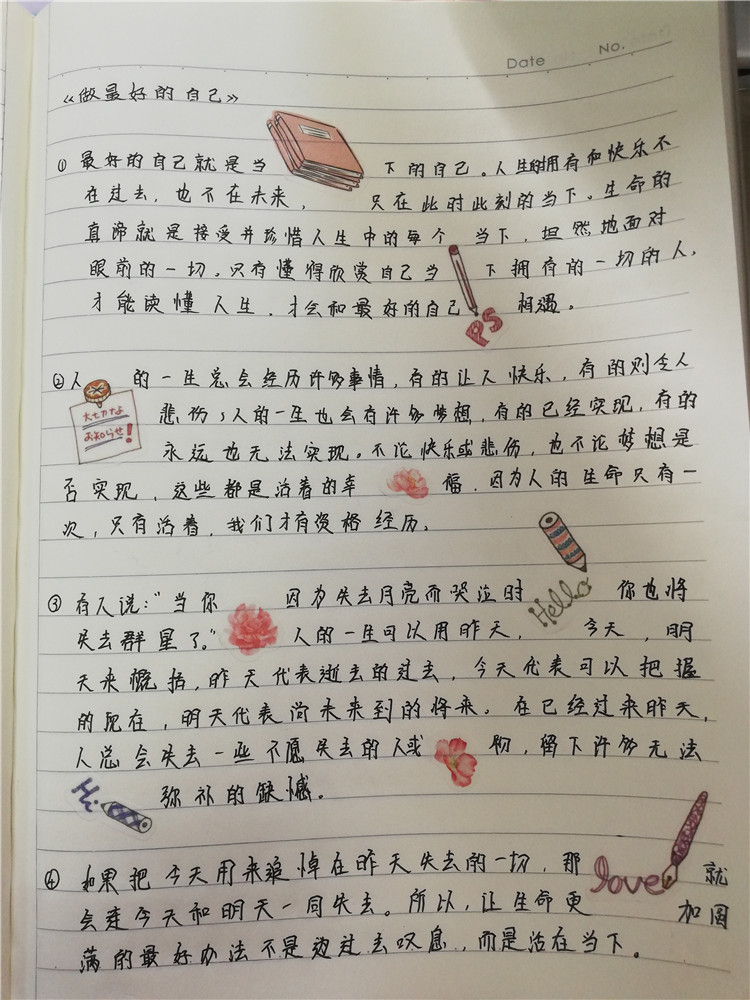 Date No.
《做最好的自己》
① 最好的自己就是当 下的自己。人生的拥有和快乐不
在过去，也不在未来， 只在此时此刻的当下。生命的
真谛就是接受并珍惜人生中的每个 当下，坦然地面对
眼前的一切。只有懂得欣赏自己当 下拥有的一切的人，
才能读懂人生，才会和最好的自己 相遇。
PS
②人 的一生总会经历许多事情，有的让人快乐，有的则令人
大七カナよ
悲伤；人的一生也会有许多梦想，有的已经实现，有的
お知らせ!
永远也无法实现。不论快乐或悲伤，也不论梦想是
否实现，这些都是活着的幸 福，因为人的生命只有一
次，只有活着，我们才有资格经历。
Hello
③ 有人说："当你 因为失去月亮而哭泣时 你也将
失去群星了。" 人的一生可以用昨天， 今天，明
天来概括，昨天代表逝去的过去，今天代表可以把握
的现在，明天代表尚未来到的将来。在已经过来昨天，
人总会失去一些不愿失去的人或 物，留下许多无法
Hi
弥补的缺憾。
④ 如果把今天用来追悼在昨天失去的一切，那 love 就
会连今天和明天一同失去。所以，让生命更 加圆
满的最好办法不是边过去叹息，而是活在当下。